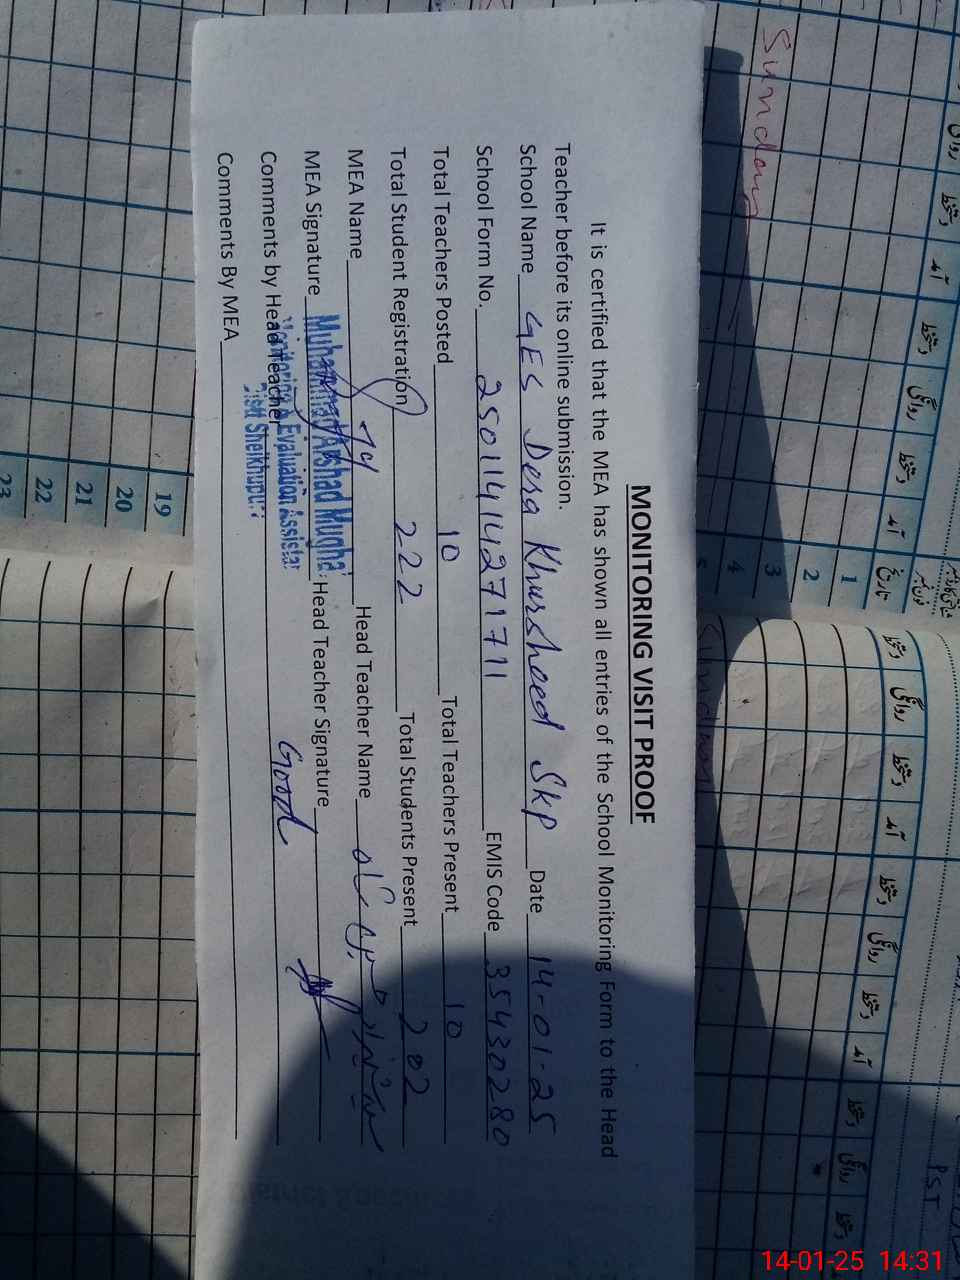 MONITORING VISIT PROOF
It is certified that the MEA has shown all entries of the School Monitoring Form to the Head
Teacher before its online submission.
School Name GES Dera Khursheed Skp Date 14-01-25
School Form No. 25011414271711 EMIS Code 35430280
Total Teachers Posted 10 Total Teachers Present 10
Total Student Registration 222 Total Students Present 202
MEA Name 74 Head Teacher Name
MEA Signature Muhammad Arshad Mughal Head Teacher Signature
Comments by Head Teacher Good
Monitoring & Evaluation Assistan
Distt Sheikhupura
Comments By MEA
Sunday
روانگی
دستخط
آمد
دستخط
روانگی
دستخط
آمد
تاریخ
دستخط
روانگی
دستخط
آمد
دستخط
روانگی
دستخط
آمد
دستخط
روانگی
دستخط
1
2
3
4
5
Sunday
19
20
21
22
23
PST
14-01-25 14:31